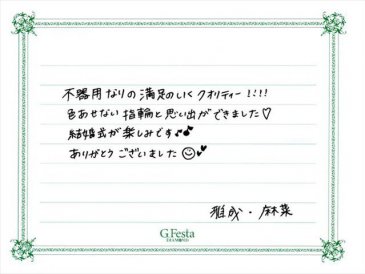 不器用なりの満足のいくクオリティー!!!!
色あせない指輪と思い出ができました♡
結婚式が楽しみです♪♪
ありがとうございました☺💕
雅成・麻菜
G.Festa
DIAMOND